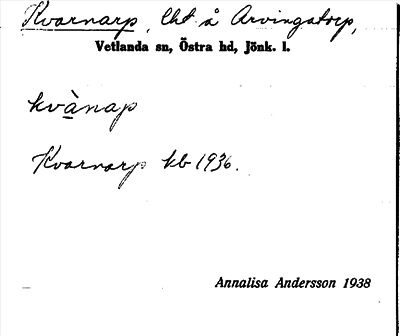 Kvarnarp, Lht å Arvingstorp,
Vetlanda sn, Östra hd, Jönk. l.
kvànap
Kvarnarp kb 1936.
Annalisa Andersson 1938